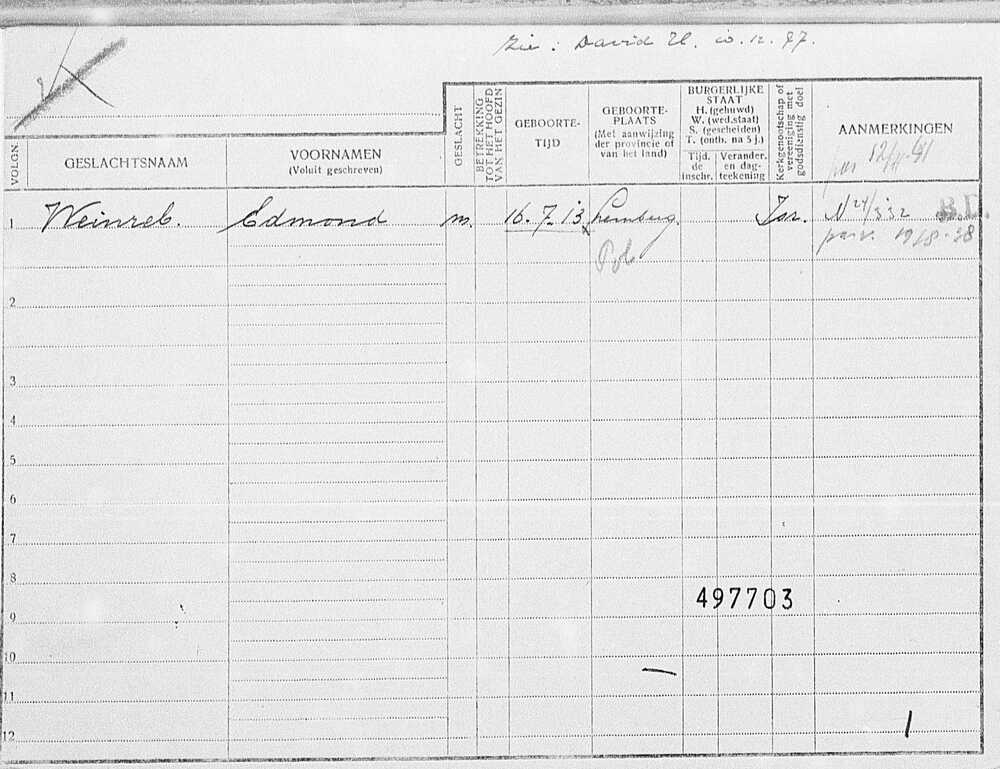 Zie: David H. 10.12.97.
VOLGN.
GESLACHTSNAAM
VOORNAMEN
(Voluit geschreven)
GESLACHT
BETREKKING
TOT HET HOOFD
VAN HET GEZIN
GEBOORTE-
TIJD
GEBOORTE-
PLAATS
(Met aanwijzing
der provincie of
van het land)
BURGERLIJKE
STAAT
H. (gehuwd)
W. (wed.staat)
S. (gescheiden)
T. (ontb. na 5 j.)
Tijd.
de
inschr.
Verander.
en dag-
teekening
Kerkgenootschap of
vereeniging met
godsdienstig doel
AANMERKINGEN
1 Weinreb. Edmond m. 16.7.13 Lemberg Isr. N 24/332 B.D.
Pol 1918-38
2
3
4
5
6
7
8
497703
9
10
11
12